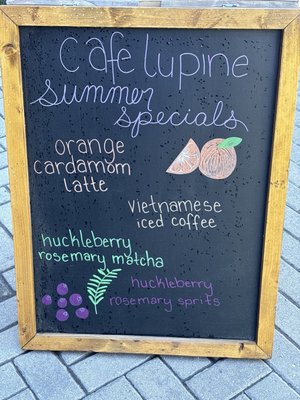 Cafe lupine
summer
specials
orange
cardamom
latte
vietnamese
iced coffee
huckleberry
rosemary matcha
huckleberry
rosemary sprits